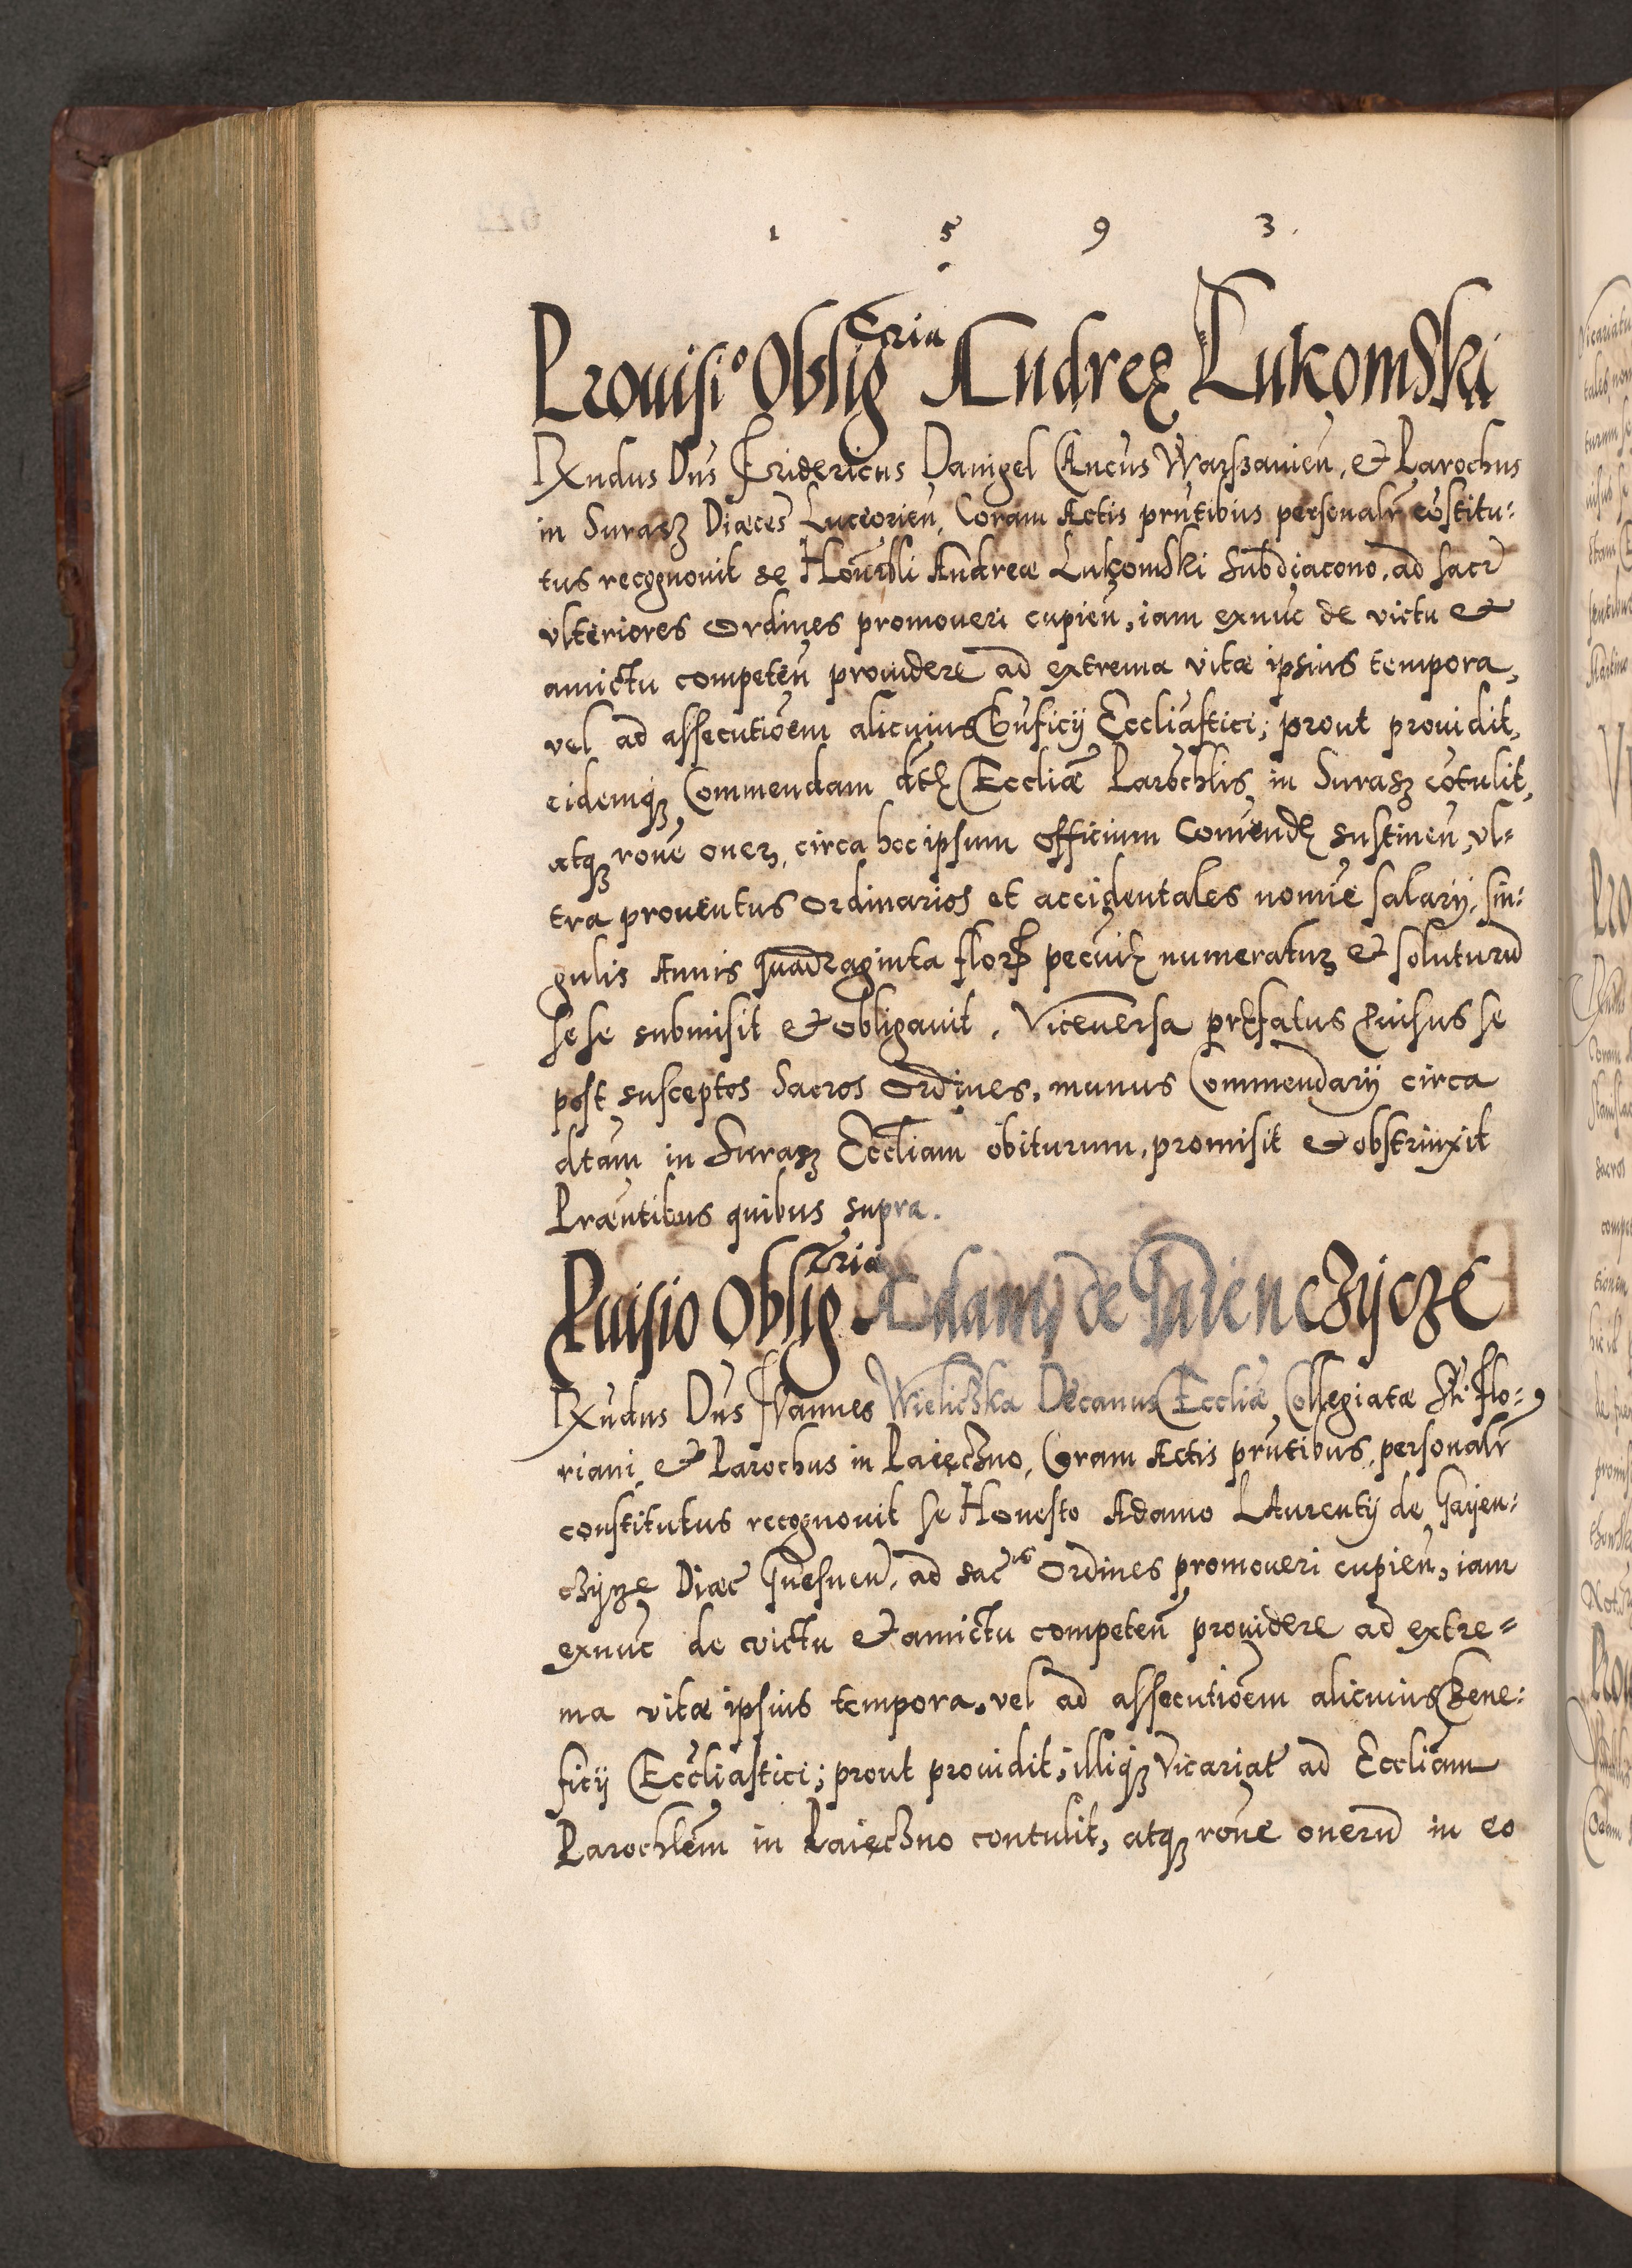 1 5 9 3.
Prouisio Oblig toria Andreę Lukomski
Rxndus Dns Fridericus Danigel Cancus Warszauien. et Parochus
in Surasz Diæces Luceorien, Coram Actis prntibus personalr cōstitu:
tus recognouit se Honrbli Andreæ Lukomski Subdiacono, ad sacr
vlteriores Ordines promoueri cupien, iam exnuc de victu et
amictu competen prouidere ad extrema vitæ ipsius tempora,
vel ad assecutioēm alicuius Bnficij Eccliastici; prout prouidit,
eidemq₃ Commendam dtę Eccliæ Parochlis in Surasz cōtulit,
atq₃ rone oner, circa hoc ipsum officium Comendę sustinen, vl=
tra prouentus ordinarios et accidentales nomie salarij, sin:
gulis Annis quadraginta flor pecuię numeratur et soluturū
sese submisit et obligauit. Viceuersa pręfatus Puisus se
post susceptos Sacros Ordines, munus Commendarij circa
dtam in Surasz Eccliam obiturum, promisit et obstrinxit
Præntibus quibus supra.
Puisio Oblig toria Adamj de Gaienczÿcze
Rxndus Dns Joannes Wieliczka Decanus Eccliæ Collegiatæ Sti Flo:
riani et Parochus in Paięczno, Coram Actis prntibus personalr
constitutus recognouit se Honesto Adamo Laurentij de Gayen:
czÿcze Diæc Gnesnen, ad sac os Ordines promoueri cupien, iam
exnuc de victu et amictu competen prouidere ad extre=
ma vitæ ipsius tempora, vel ad assecutioēm alicuius Bene:
ficij Eccliastici; prout prouidit, illiq₃ Vicariat ad Eccliam
Parochlem in Paięczno contulit, atq₃ rone onerū in eo